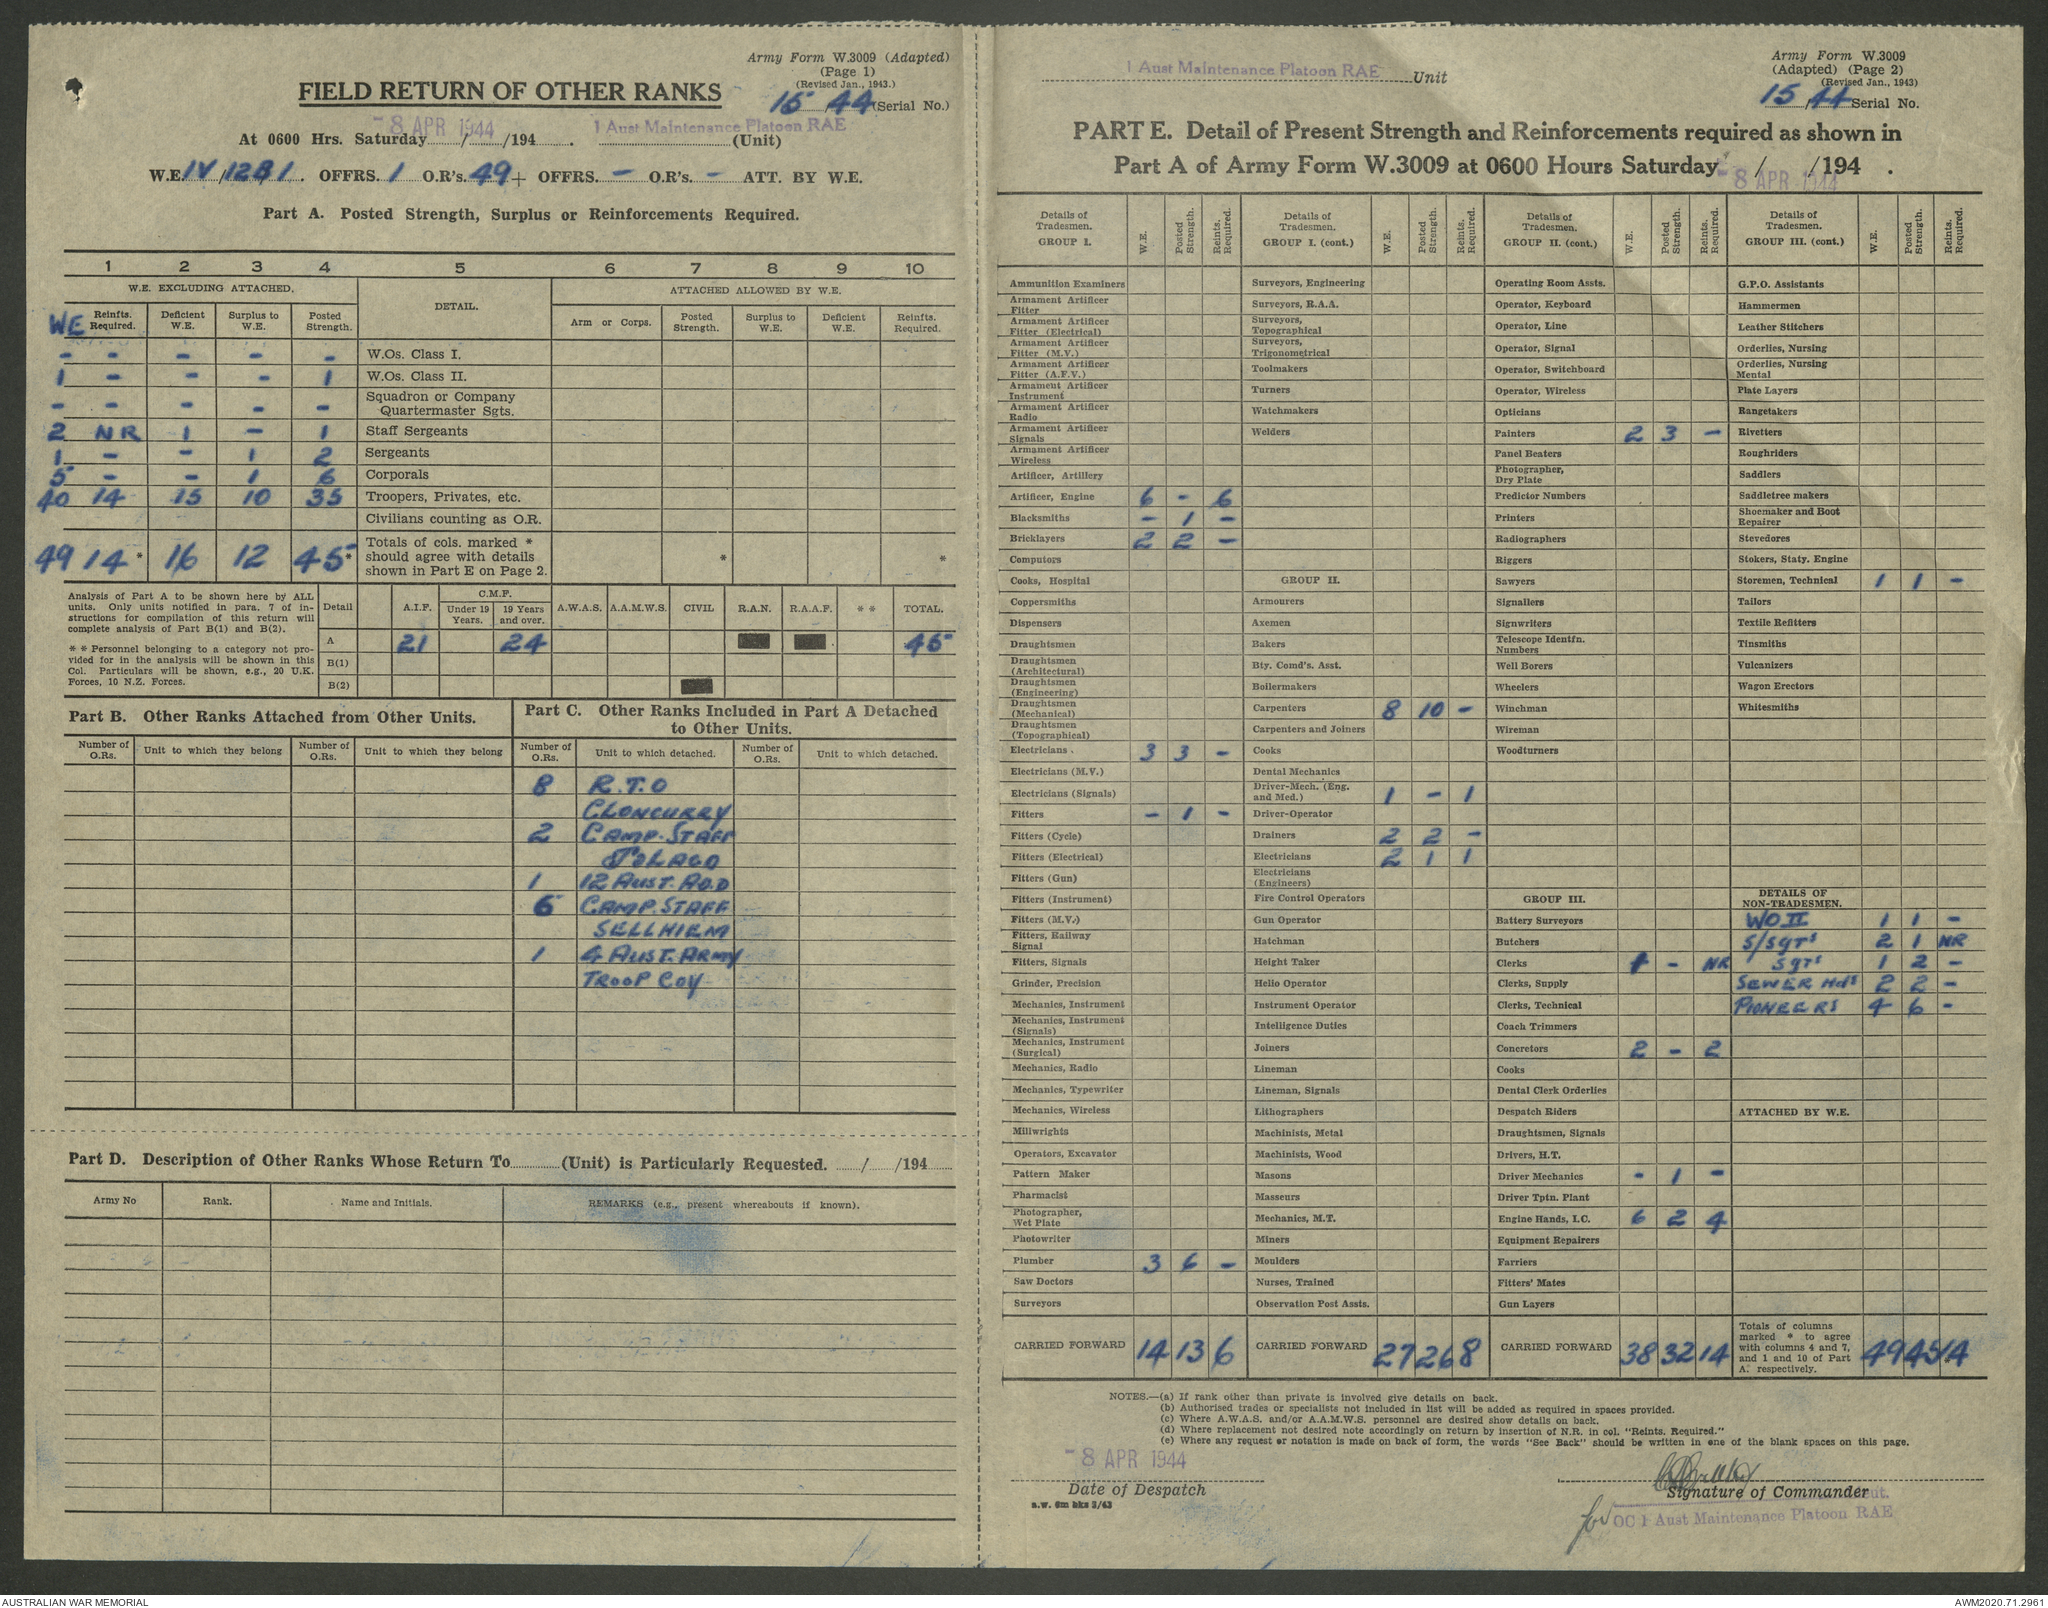 Army Form W.3009 (Adapted)
(Page 1)
(Revised Jan., 1943.)
FIELD RETURN OF OTHER RANKS
15 / 44 (Serial No.)
-8 APR 1944 1 Aust Maintenance Platoon RAE
At 0600 Hrs. Saturday / /194 . (Unit)
W.E. IV / 12B/1 . OFFRS. 1 O.R's. 49 + OFFRS. - O.R's. - ATT. BY W.E.
Part A. Posted Strength, Surplus or Reinforcements Required.
1 2 3 4 5 6 7 8 9 10
W.E. EXCLUDING ATTACHED. DETAIL. ATTACHED ALLOWED BY W.E.
WE Reinfts. Required. Deficient W.E. Surplus to W.E. Posted Strength. Arm or Corps. Posted Strength. Surplus to W.E. Deficient W.E. Reinfts. Required.
- - - - - W.Os. Class I.
1 - - - 1 W.Os. Class II.
- - - - - Squadron or Company Quartermaster Sgts.
2 NR 1 - 1 Staff Sergeants
1 - - 1 2 Sergeants
5 - - 1 6 Corporals
40 14 15 10 35 Troopers, Privates, etc.
Civilians counting as O.R.
49 14 * 16 12 45 * Totals of cols. marked * should agree with details shown in Part E on Page 2. * *
Analysis of Part A to be shown here by ALL
units. Only units notified in para. 7 of in-
structions for compilation of this return will
complete analysis of Part B(1) and B(2).
* * Personnel belonging to a category not pro-
vided for in the analysis will be shown in this
Col. Particulars will be shown, e.g., 20 U.K.
Forces, 10 N.Z. Forces.
Detail A.I.F. C.M.F. Under 19 Years. 19 Years and over. A.W.A.S. A.A.M.W.S. CIVIL R.A.N. R.A.A.F. * * TOTAL.
A 21 24 45
B(1)
B(2)
Part B. Other Ranks Attached from Other Units.
Part C. Other Ranks Included in Part A Detached
to Other Units.
Number of O.Rs. Unit to which they belong Number of O.Rs. Unit to which they belong Number of O.Rs. Unit to which detached. Number of O.Rs. Unit to which detached.
8 R.T.O
CLONCURRY
2 CAMP. STAFF
JULAGO
1 12 AUST. AO.D
5 CAMP. STAFF
SELLHIEM
1 4 AUST. ARMY
TROOP COY
Part D. Description of Other Ranks Whose Return To (Unit) is Particularly Requested. / /194
Army No Rank. Name and Initials. REMARKS (e.g., present whereabouts if known).
1 Aust Maintenance Platoon RAE Unit
Army Form W.3009
(Adapted) (Page 2)
(Revised Jan., 1943)
15 / 44 Serial No.
PART E. Detail of Present Strength and Reinforcements required as shown in
Part A of Army Form W.3009 at 0600 Hours Saturday / /194 .
-8 APR 1944
Details of Tradesmen. GROUP I. W.E. Posted Strength. Reints. Required.
Ammunition Examiners
Armament Artificer Fitter
Armament Artificer Fitter (Electrical)
Armament Artificer Fitter (M.V.)
Armament Artificer Fitter (A.F.V.)
Armament Artificer Instrument
Armament Artificer Radio
Armament Artificer Signals
Armament Artificer Wireless
Artificer, Artillery
Artificer, Engine 6 - 6
Blacksmiths - 1 -
Bricklayers 2 2 -
Computors
Cooks, Hospital
Coppersmiths
Dispensers
Draughtsmen
Draughtsmen (Architectural)
Draughtsmen (Engineering)
Draughtsmen (Mechanical)
Draughtsmen (Topographical)
Electricians . 3 3 -
Electricians (M.V.)
Electricians (Signals)
Fitters - 1 -
Fitters (Cycle)
Fitters (Electrical)
Fitters (Gun)
Fitters (Instrument)
Fitters (M.V.)
Fitters, Railway Signal
Fitters, Signals
Grinder, Precision
Mechanics, Instrument
Mechanics, Instrument (Signals)
Mechanics, Instrument (Surgical)
Mechanics, Radio
Mechanics, Typewriter
Mechanics, Wireless
Millwrights
Operators, Excavator
Pattern Maker
Pharmacist
Photographer, Wet Plate
Photowriter
Plumber 3 6 -
Saw Doctors
Surveyors
CARRIED FORWARD 14 13 6
Details of Tradesmen. GROUP I. (cont.) W.E. Posted Strength. Reints. Required.
Surveyors, Engineering
Surveyors, R.A.A.
Surveyors, Topographical
Surveyors, Trigonometrical
Toolmakers
Turners
Watchmakers
Welders
GROUP II.
Armourers
Axemen
Bakers
Bty. Comd's. Asst.
Boilermakers
Carpenters 8 10 -
Carpenters and Joiners
Cooks
Dental Mechanics
Driver-Mech. (Eng. and Med.) 1 - 1
Driver-Operator
Drainers 2 2 -
Electricians 2 1 1
Electricians (Engineers)
Fire Control Operators
Gun Operator
Hatchman
Height Taker
Helio Operator
Instrument Operator
Intelligence Duties
Joiners
Lineman
Lineman, Signals
Lithographers
Machinists, Metal
Machinists, Wood
Masons
Masseurs
Mechanics, M.T.
Miners
Moulders
Nurses, Trained
Observation Post Assts.
CARRIED FORWARD 27 26 8
Details of Tradesmen. GROUP II. (cont.) W.E. Posted Strength. Reints. Required.
Operating Room Assts.
Operator, Keyboard
Operator, Line
Operator, Signal
Operator, Switchboard
Operator, Wireless
Opticians
Painters 2 3 -
Panel Beaters
Photographer, Dry Plate
Predictor Numbers
Printers
Radiographers
Riggers
Sawyers
Signallers
Signwriters
Telescope Identfn. Numbers
Well Borers
Wheelers
Winchman
Wireman
Woodturners
GROUP III.
Battery Surveyors
Butchers
Clerks 1 - NR
Clerks, Supply
Clerks, Technical
Coach Trimmers
Concretors 2 - 2
Cooks
Dental Clerk Orderlies
Despatch Riders
Draughtsmen, Signals
Drivers, H.T.
Driver Mechanics - 1 -
Driver Tptn. Plant
Engine Hands, I.C. 6 2 4
Equipment Repairers
Farriers
Fitters' Mates
Gun Layers
CARRIED FORWARD 38 32 14
Details of Tradesmen. GROUP III. (cont.) W.E. Posted Strength. Reints. Required.
G.P.O. Assistants
Hammermen
Leather Stitchers
Orderlies, Nursing
Orderlies, Nursing Mental
Plate Layers
Rangetakers
Rivetters
Roughriders
Saddlers
Saddletree makers
Shoemaker and Boot Repairer
Stevedores
Stokers, Staty. Engine
Storemen, Technical 1 1 -
Tailors
Textile Refitters
Tinsmiths
Vulcanizers
Wagon Erectors
Whitesmiths
DETAILS OF NON-TRADESMEN.
WO II 1 1 -
S/Sgts 2 1 NR
Sgts 1 2 -
SEWER Hds 2 2 -
PIONEERS 4 6 -
ATTACHED BY W.E.
Totals of columns marked * to agree with columns 4 and 7, and 1 and 10 of Part A. respectively. 49 45 14
NOTES.—(a) If rank other than private is involved give details on back.
(b) Authorised trades or specialists not included in list will be added as required in spaces provided.
(c) Where A.W.A.S. and/or A.A.M.W.S. personnel are desired show details on back.
(d) Where replacement not desired note accordingly on return by insertion of N.R. in col. "Reints. Required."
(e) Where any request or notation is made on back of form, the words "See Back" should be written in one of the blank spaces on this page.
-8 APR 1944
Date of Despatch
Signature of Commander
a.w. 6m bks 3/43
for OC 1 Aust Maintenance Platoon RAE
AUSTRALIAN WAR MEMORIAL
AWM2020.71.2961